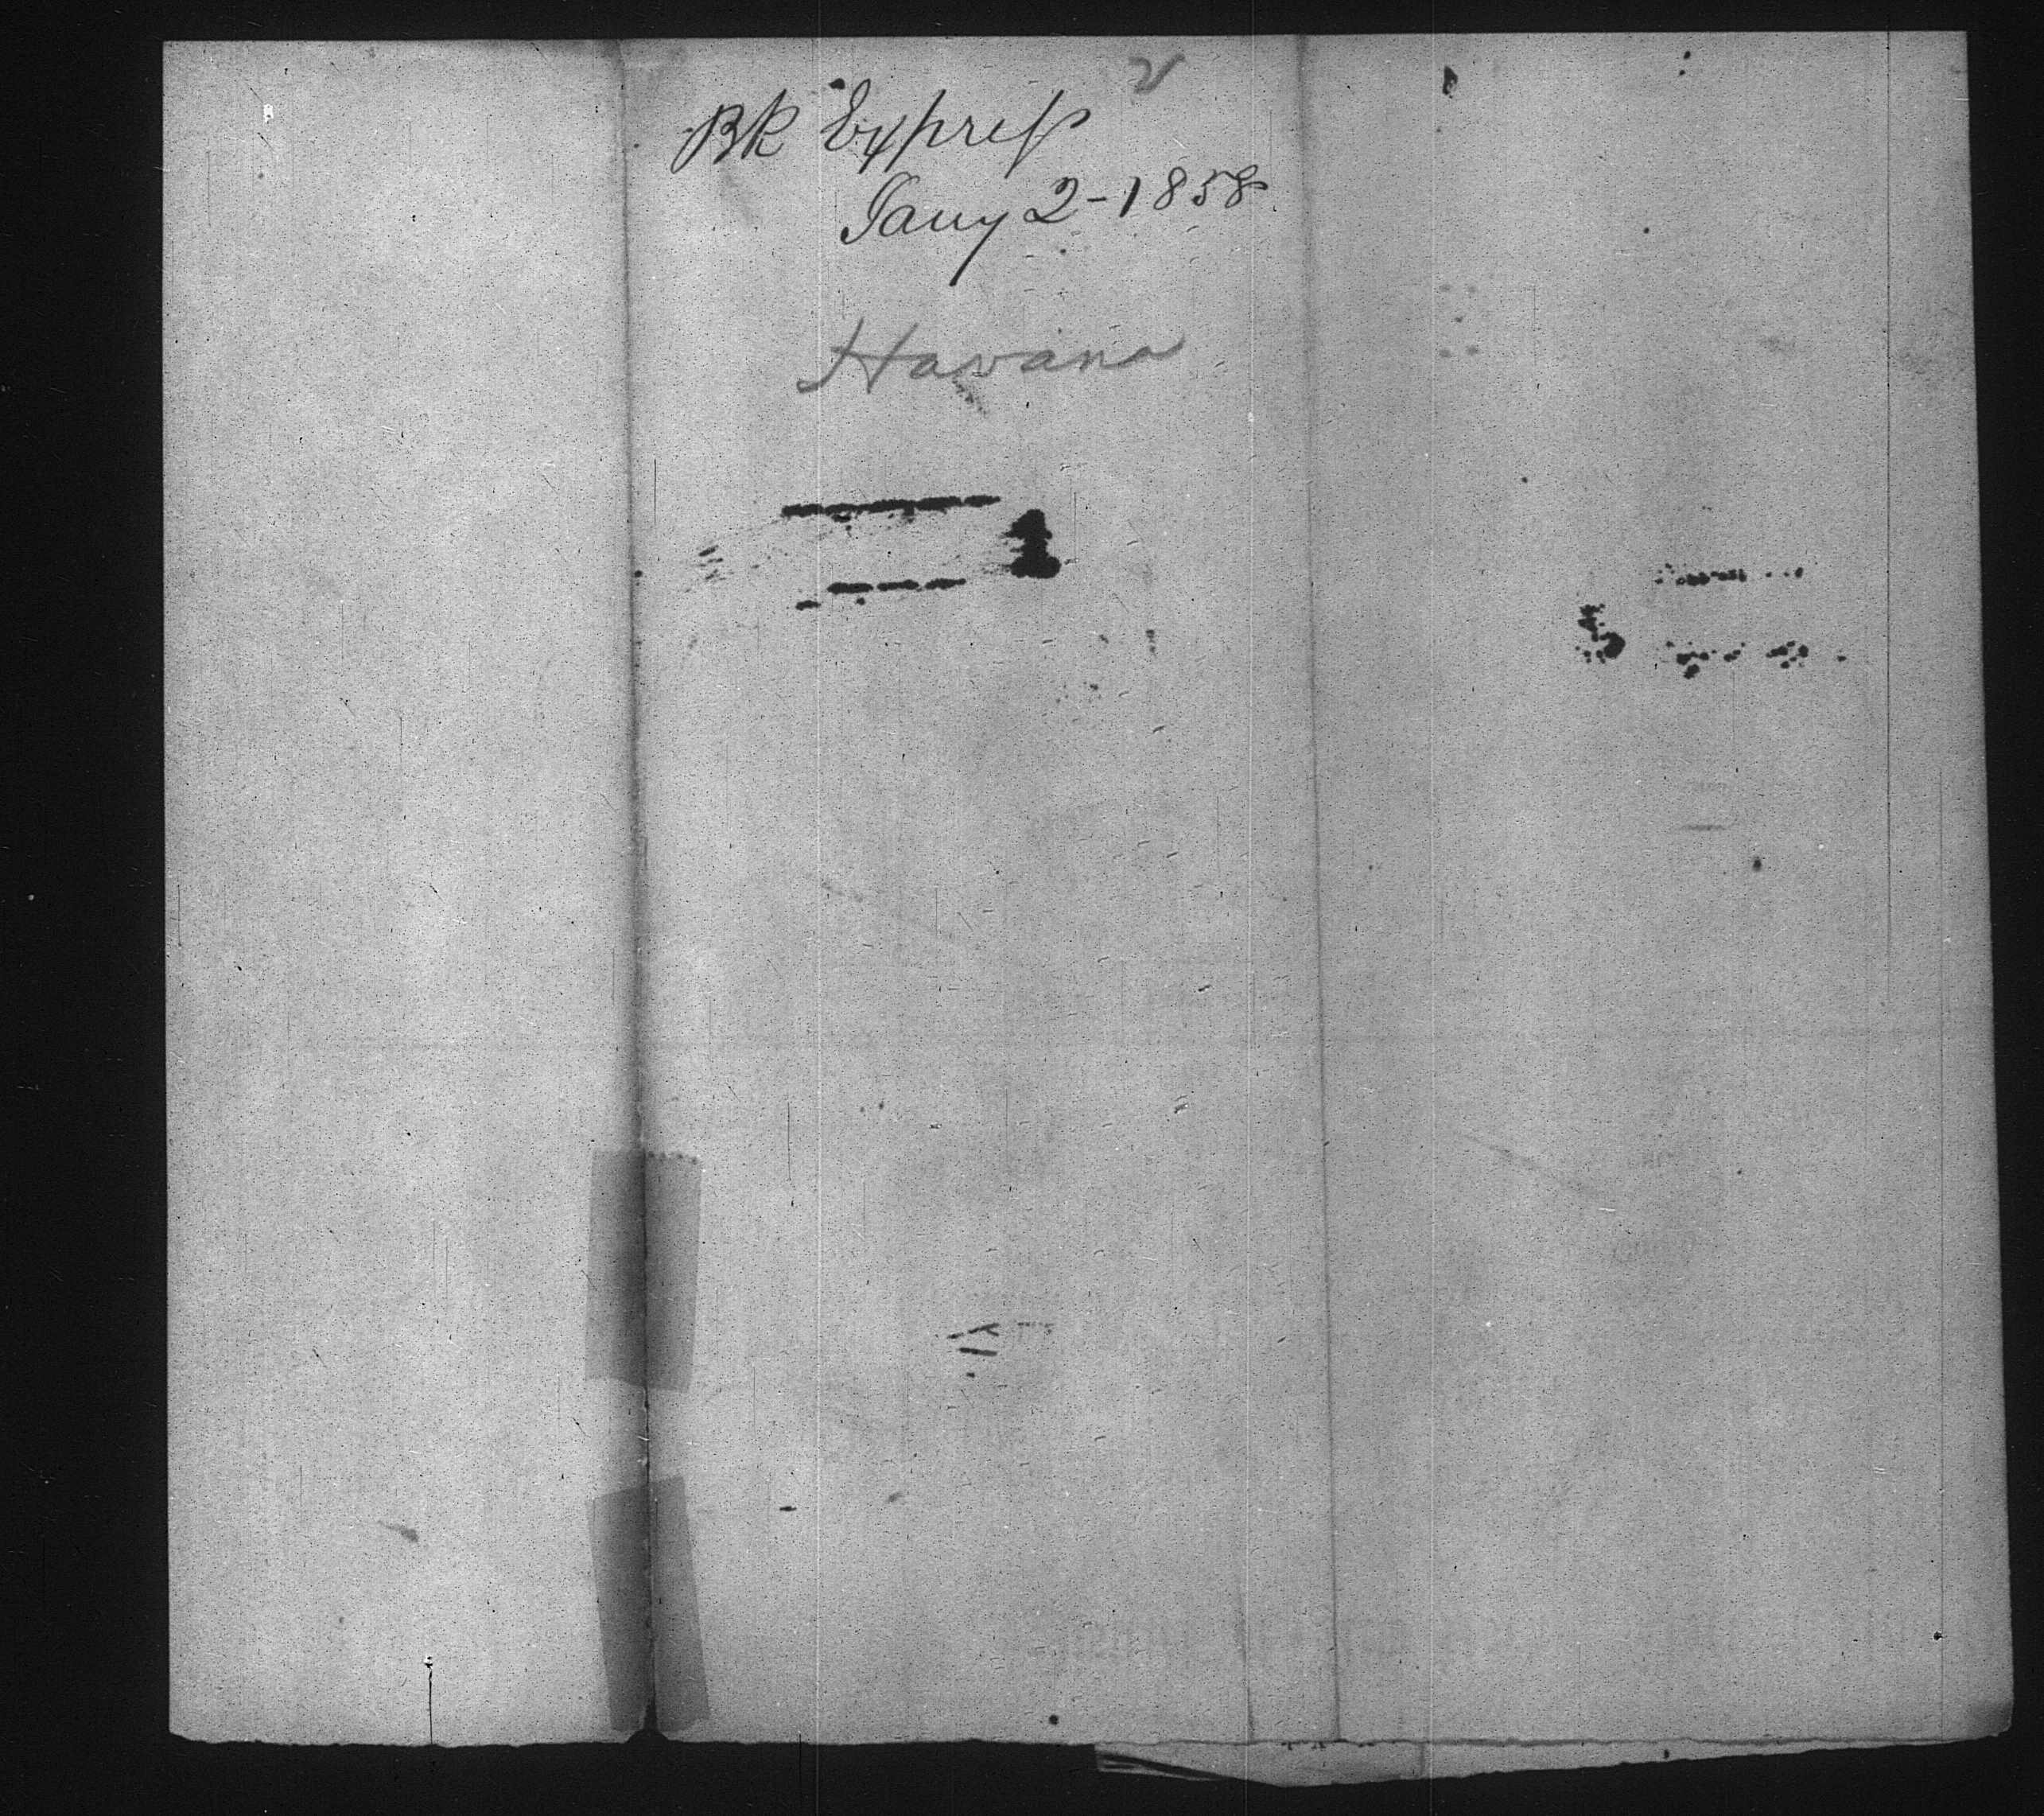 Bk Express
Jany 2-1858
Havana